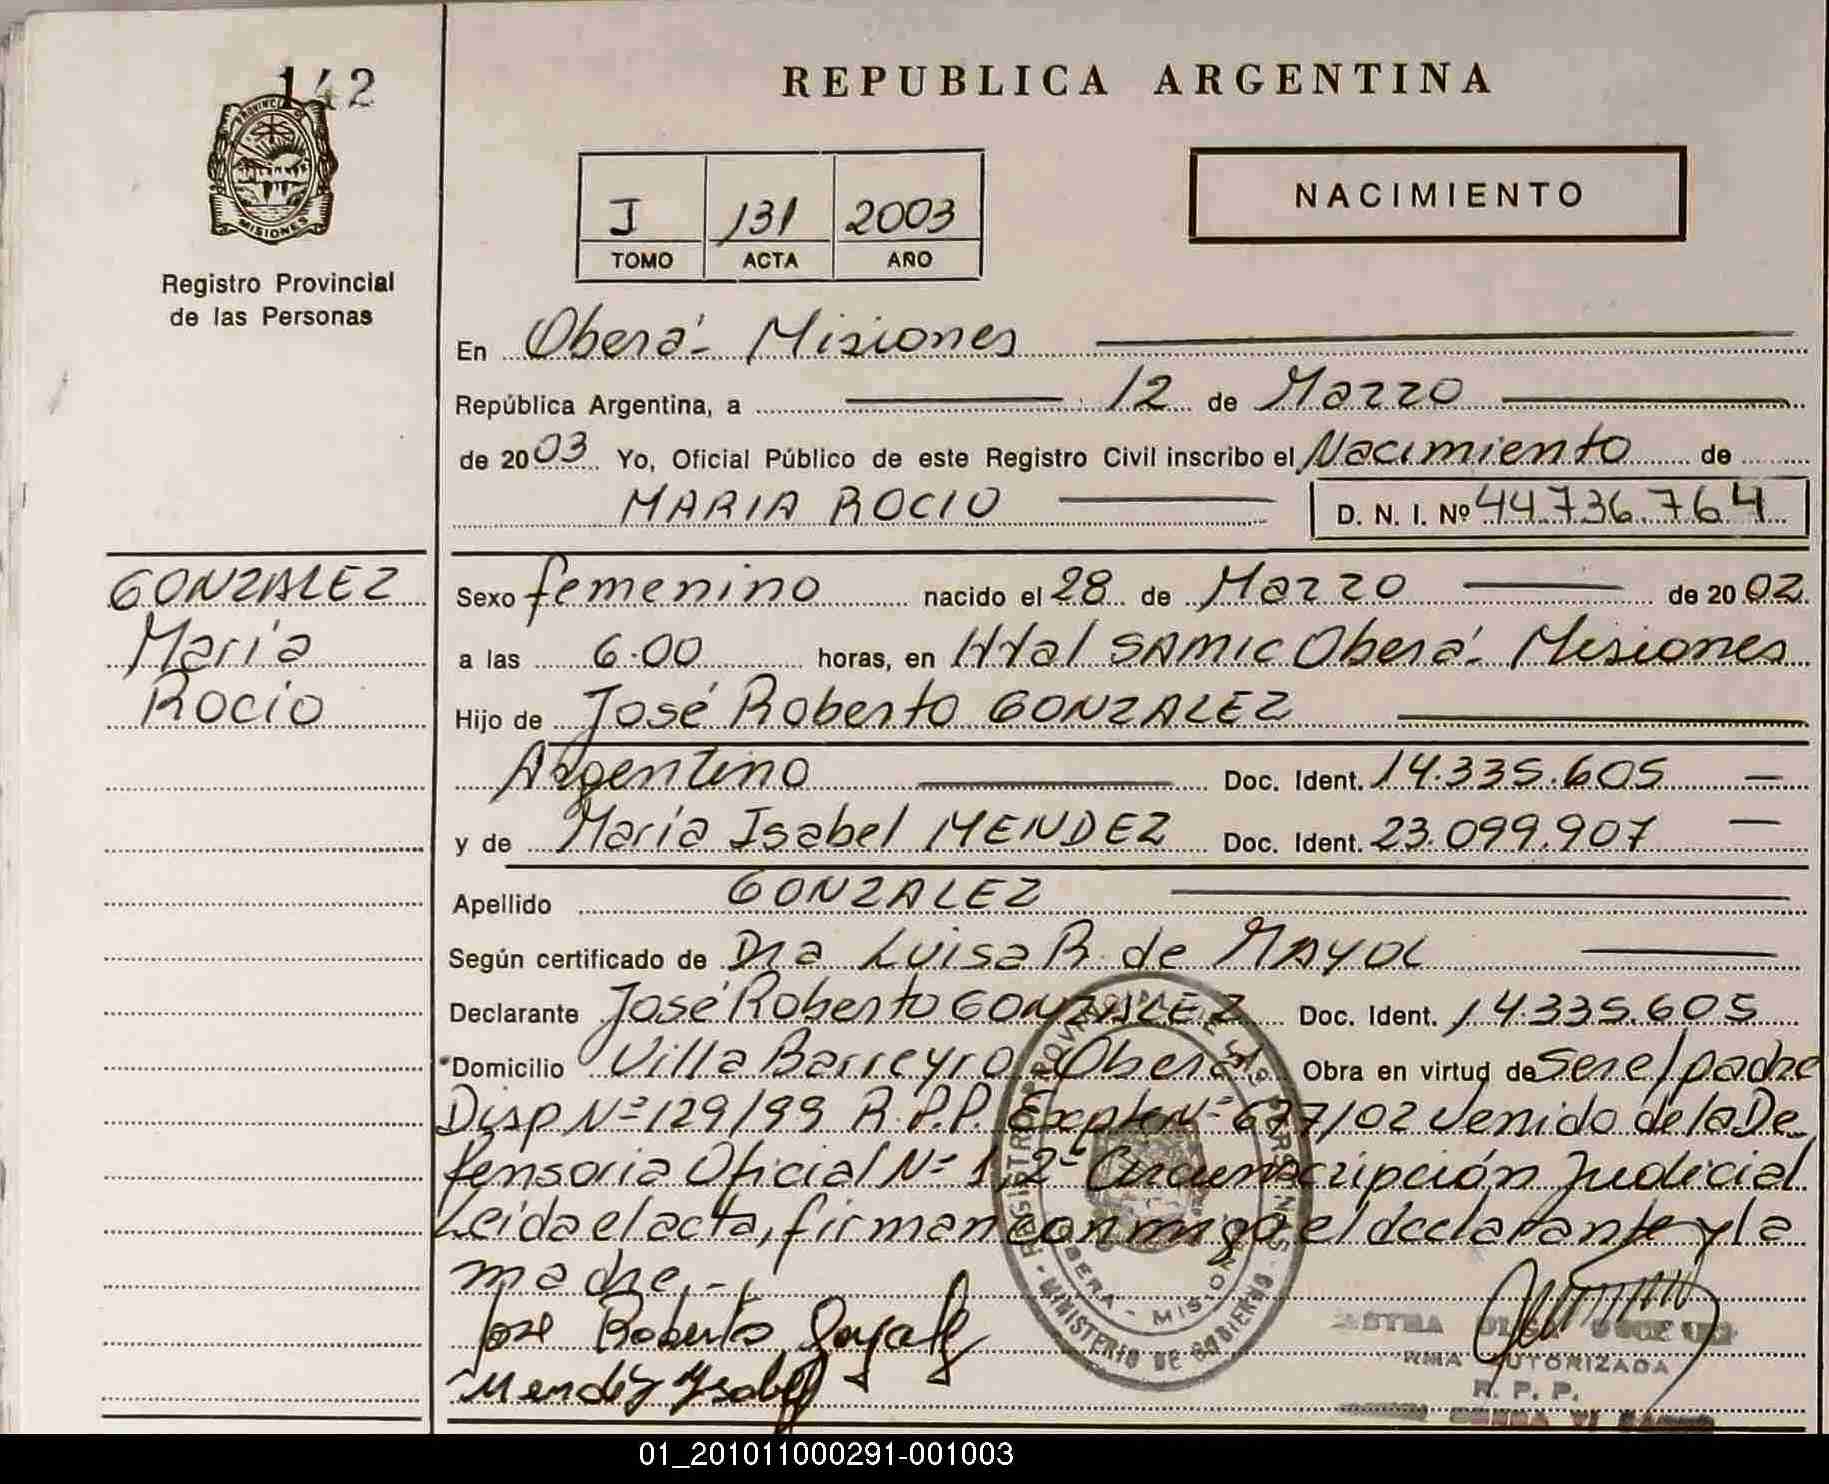 142
PROVINCIA D
MISIONES
Registro Provincial
de las Personas
GONZALEZ
María
Rocío
REPUBLICA ARGENTINA
NACIMIENTO
I 131 2003
TOMO ACTA AÑO
En Oberá - Misiones
República Argentina, a 12 de Marzo
de 2003 Yo, Oficial Público de este Registro Civil inscribo el Nacimiento de
MARIA ROCIO D. N. I. Nº 44.736.764
Sexo femenino nacido el 28 de Marzo de 2002
a las 6.00 horas, en Htal SAMIC Oberá - Misiones
Hijo de José Roberto GONZALEZ
Argentino Doc. Ident. 14.335.605
y de María Isabel MENDEZ Doc. Ident. 23.099.907
Apellido GONZALEZ
Según certificado de Dra Luisa R. de MAYOL
Declarante José Roberto GONZALEZ Doc. Ident. 14.335.605
Domicilio Villa Barreyro - Oberá Obra en virtud de ser el padre
Disp Nº 129/99 R.P.P. Expte Nº 677/02 venido de la De
fensoria Oficial Nº 1, 2ª Circunscripción Judicial
Leida el acta, firman conmigo el declarante y la
madre.-
Jose Roberto
Mendez Ysabel
REGISTRO PROVINCIAL DE LAS PERSONAS
OBERA - MISIONES
MINISTERIO DE GOBIERNO
OLGA
AUTORIZADA
R. P. P.
01_201011000291-001003